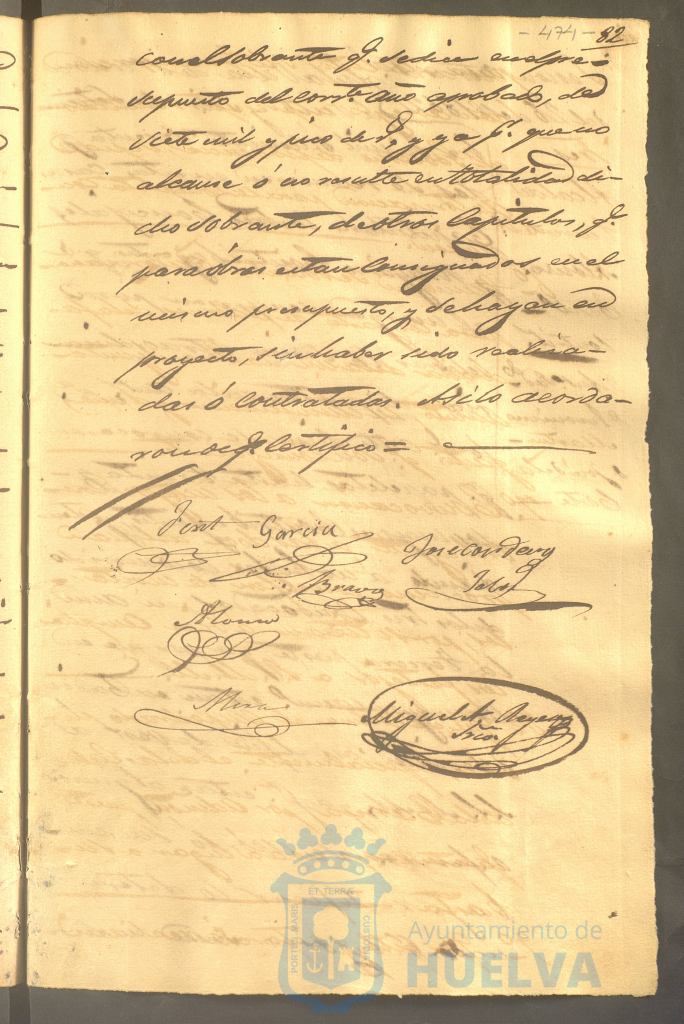 - 474 - 82
con el sobrante q.e se dice en el pre-
supuesto del corr.te año aprobado, de
siete mil y pico de r.s, y ya p.r que no
alcanse ó no resulte en totalidad di-
cho sobrante, de otros Capitulos, q.e
para óbras estan Consignados en el
mismo presupuesto, y se hayan en
proyecto, sin haber sido realisa-
das ó contratadas. Asi lo acorda-
ron de q.e Certifico =
Garcia
Bravo
Alonso
Mora
Miguel
Srio
ET TERRÆ
PORTUS MARIS
CUSTODIA
Ayuntamiento de
HUELVA